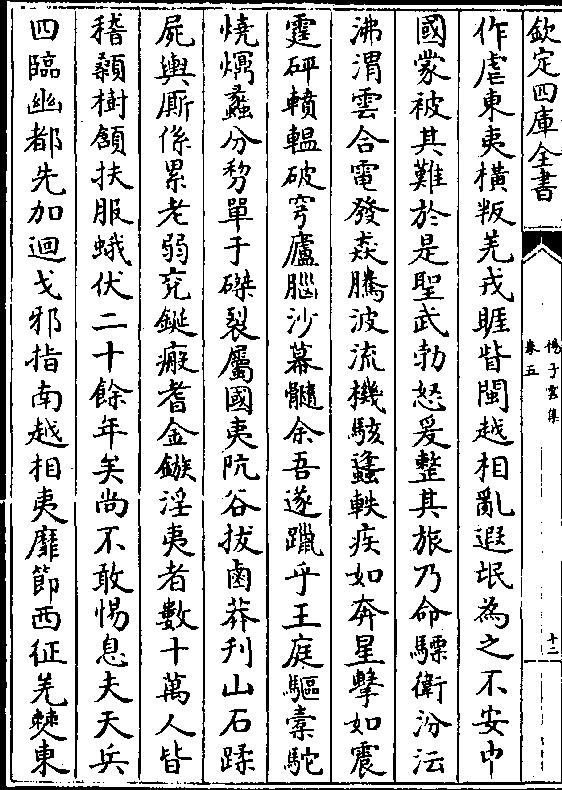 欽定四庫全書
揚子雲集
卷五
十二
作虐東夷橫叛羌戎睚眥閩越相亂遐氓為之不安中
國蒙被其難於是聖武勃怒爰整其旅乃命驃衛汾沄
沸渭雲合電發猋騰波流機駭蠭軼疾如奔星擊如震
霆砰轒輼破穹廬腦沙幕髓余吾遂躐乎王庭驅橐駝
燒熐蠡分剓單于磔裂屬國夷阬谷拔鹵莽刋山石蹂
屍輿厮係累老弱兗鋋瘢耆金鏃淫夷者數十萬人皆
稽顙樹頷扶服蛾伏二十餘年矣尚不敢惕息夫天兵
四臨幽都先加迴戈邪指南越相夷靡節西征羌僰東